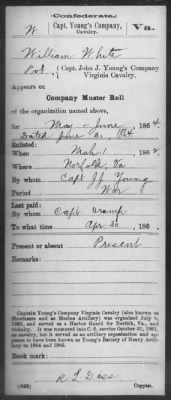 (Confederate.)
W Capt. Young's Company, Cavalry. Va.
William White
Pvt., Capt. John J. Young's Company Virginia Cavalry.
Appears on
Company Muster Roll
of the organization named above,
for May - June, 1864.
Dated June 30 1864
Enlisted:
When Mch 1, 1862.
Where Norfolk, Va
By whom Capt J J Young
Period War
Last paid:
By whom Capt
To what time Apr 30, 186
Present or absent Present
Remarks:
Captain Young's Company Virginia Cavalry (also known as
and as Marine Artillery) was organized July
1861, and served as a Harbor Guard for Norfolk, Va., and
vicinity. It was mustered into C. S. service October 31, 1861,
as cavalry, but it served as an artillery organization and ap-
pears to have been known as Young's Battery of Heavy Artillery
in 1864 and 1865.
Book mark:
(642)
Copyist.